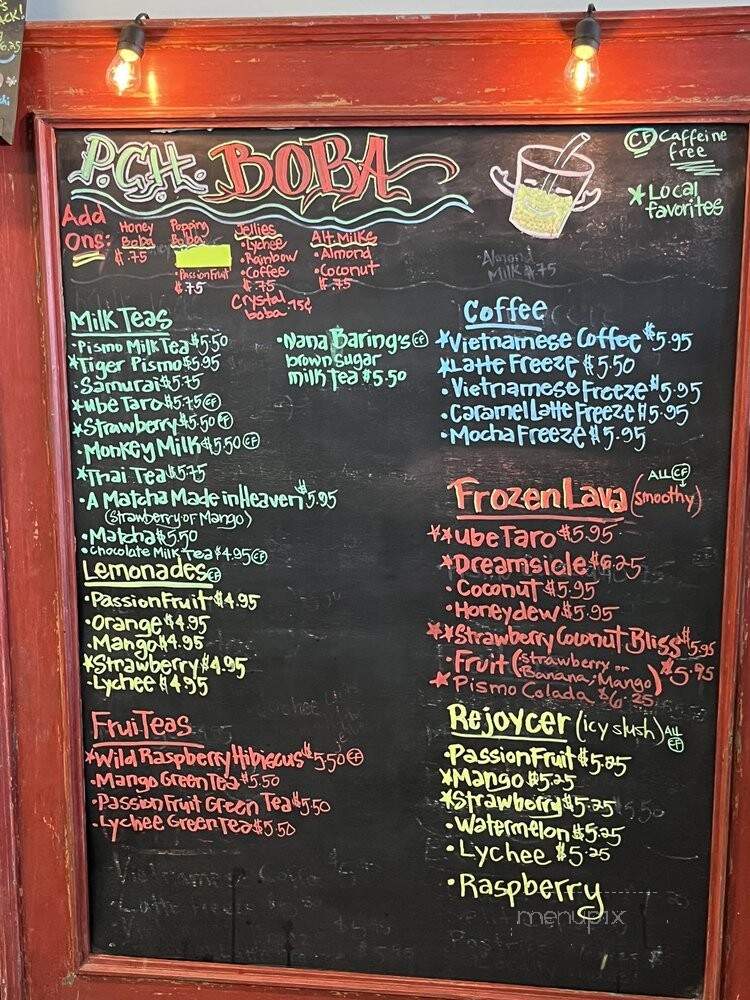 P.C.H. BOBA
CF Caffeine
free
* Local
favorites
Add
Ons:
Honey
Boba
$.75
Popping
Boba
•Passion Fruit
$.75
Jellies
•Lychee
•Rainbow
•Coffee
$.75
Crystal
boba .75¢
Alt Milks
•Almond
•Coconut
$.75
•Almond
Milk $.75
Milk Teas
•Pismo Milk Tea $5.50
*Tiger Pismo $5.95
•Samurai $5.75
*Ube Taro $5.75 CF
*Strawberry $5.50 CF
•Monkey Milk $5.50 CF
*Thai Tea $5.75
•A Matcha Made in Heaven $5.95
(Strawberry or Mango)
•Matcha $5.50
•Chocolate Milk Tea $4.95 CF
•Nana Baring's CF
brown sugar
milk tea $5.50
Lemonades CF
•Passion Fruit $4.95
•Orange $4.95
•Mango $4.95
*Strawberry $4.95
•Lychee $4.95
FruiTeas
*Wild Raspberry Hibiscus $5.50 CF
•Mango Green Tea $5.50
•Passion Fruit Green Tea $5.50
•Lychee Green Tea $5.50
Coffee
*Vietnamese Coffee $5.95
*Latte Freeze $5.50
•Vietnamese Freeze $5.95
•Caramel Latte Freeze $5.95
•Mocha Freeze $5.95
Frozen Lava (smoothy) ALL CF
**Ube Taro $5.95
*Dreamsicle $6.25
•Coconut $5.95
•Honeydew $5.95
**Strawberry Coconut Bliss $5.95
•Fruit (Strawberry or
Banana, Mango) $5.95
*Pismo Colada $6.25
Rejoycer (icy slush) ALL CF
•Passion Fruit $5.25
*Mango $5.25
*Strawberry $5.25
•Watermelon $5.25
•Lychee $5.25
•Raspberry
menupix